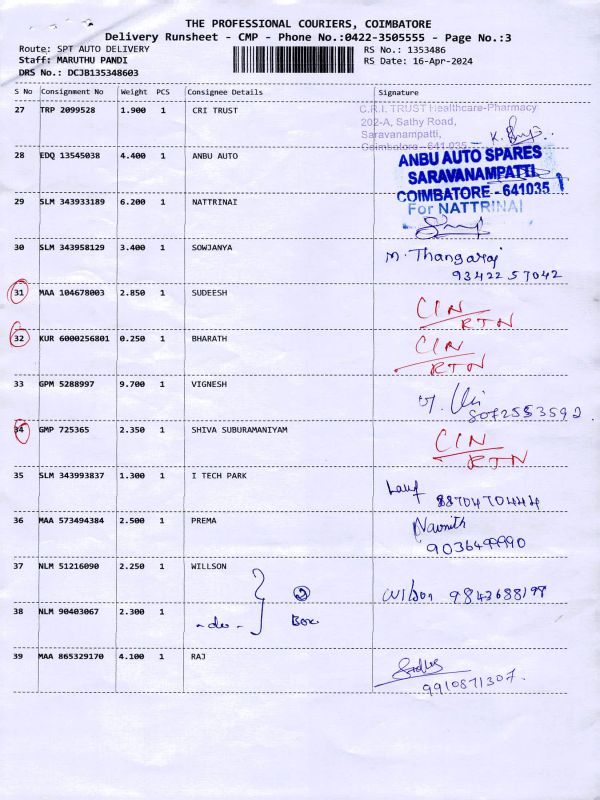 THE PROFESSIONAL COURIERS, COIMBATORE
Delivery Runsheet - CMP - Phone No.:0422-3505555 - Page No.:3
Route: SPT AUTO DELIVERY RS No.: 1353486
Staff: MARUTHU PANDI RS Date: 16-Apr-2024
DRS No.: DCJB135348603
S No Consignment No Weight PCS Consignee Details Signature
27 TRP 2099528 1.900 1 CRI TRUST
C.R.I. TRUST Healthcare-Pharmacy
202-A, Sathy Road,
Saravanampatti,
Coimbatore - 641 035
28 EDQ 13545038 4.400 1 ANBU AUTO
ANBU AUTO SPARES
SARAVANAMPATTI
COIMBATORE - 641035
29 SLM 343933189 6.200 1 NATTRINAI
For NATTRINAI
30 SLM 343958129 3.400 1 SOWJANYA M. Thangaraj
93422 57042
31 MAA 104678003 2.850 1 SUDEESH CIN
RTN
32 KUR 6000256801 0.250 1 BHARATH CIN
RTN
33 GPM 5288997 9.700 1 VIGNESH
8072553592
34 GMP 725365 2.350 1 SHIVA SUBURAMANIYAM CIN
RTN
35 SLM 343993837 1.300 1 I TECH PARK
8870470444
36 MAA 573494384 2.500 1 PREMA Navnith
9036499990
37 NLM 51216090 2.250 1 WILLSON Wilson 9843688198
38 NLM 90403067 2.300 1 -do- } 2 Box
39 MAA 865329170 4.100 1 RAJ
9910871307.